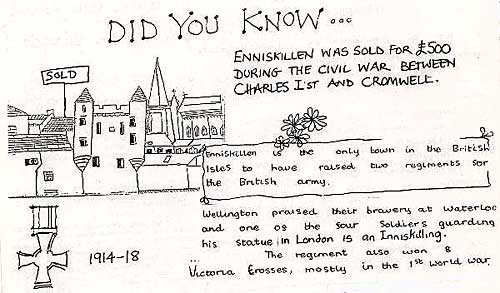 DID YOU KNOW...
ENNISKILLEN WAS SOLD FOR £500
DURING THE CIVIL WAR BETWEEN
CHARLES I'ST AND CROMWELL.
SOLD
Enniskillen is the only town in the British
Isles to have raised two regiments for
the British army.
Wellington praised their bravery at Waterloo
and one of the four Soldiers guarding
his statue in London is an Inniskilling.
... The regiment also won 8
Victoria Crosses, mostly in the 1st world war.
1914-18